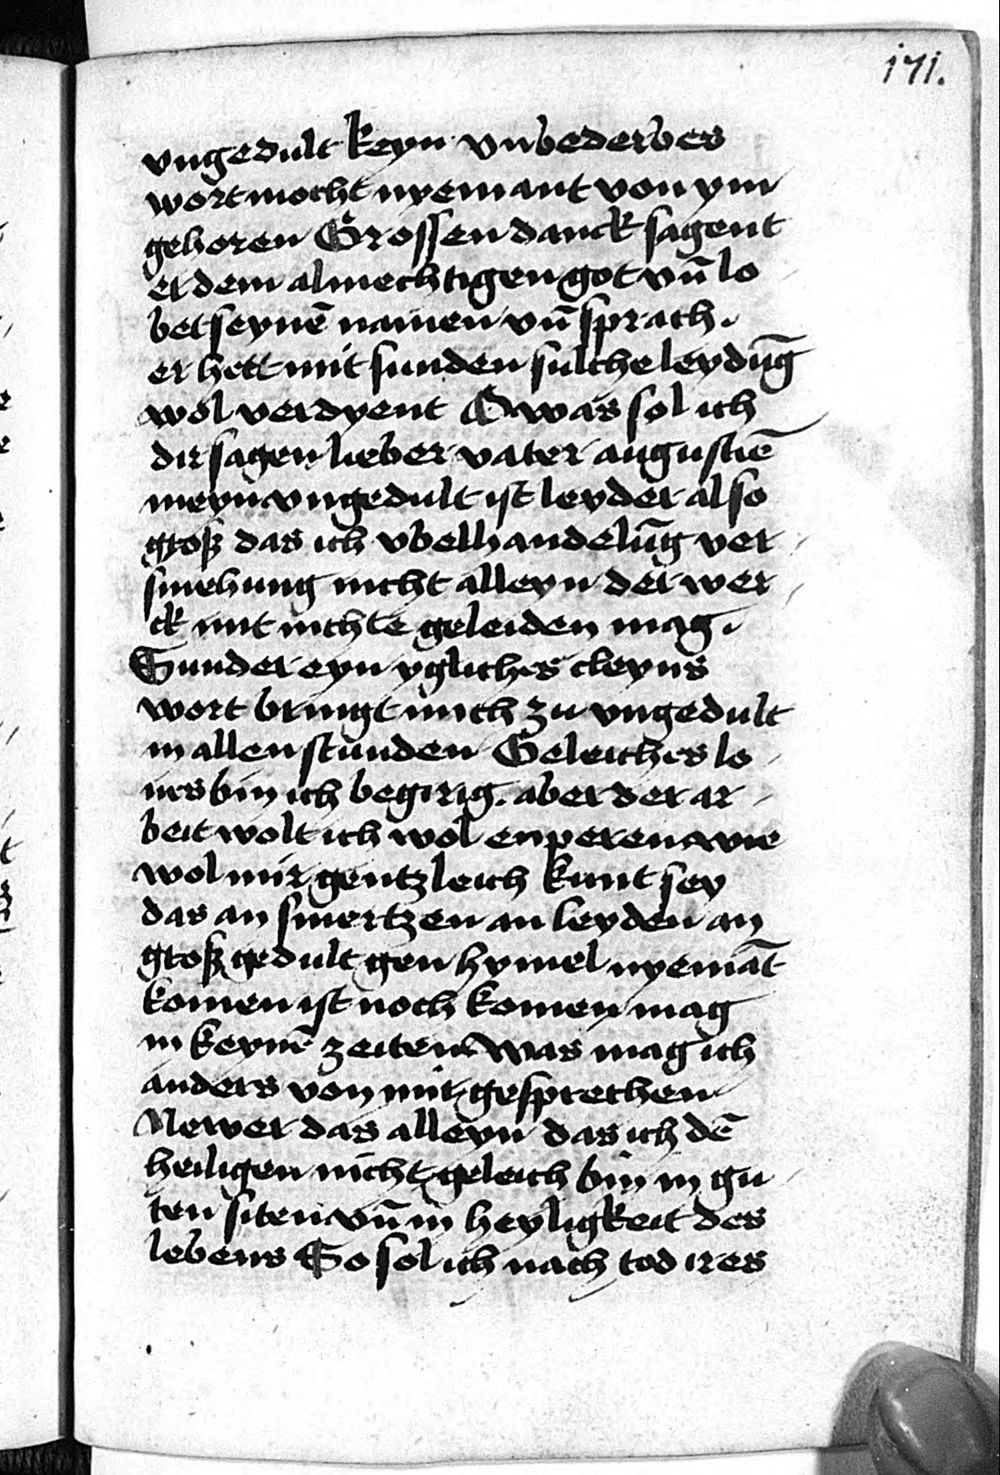 171.
vngedult keyn vnbederbes
wort mocht nyemant von ym
gehoren Grossen danck sagent
er dem almechtigen got vn̄ lo
bet seynē namen vn̄ sprach.
er hett mit sunden sulche leydūg
wol verdyent O was sol ich
dir sagen lieber vater augustiē
meyn vngedult ist leyder also
groß das ich vbelhandelūg ver
smehung nicht alleyn der wer
ck mit nichte geleiden mag.
Sunder eyn ygliches cleyns
wort bringt mich zu vngedult
in allen stunden Geleiches lo
nes bin ich begirig. aber der ar
beit wolt ich wol enperen wie
wol mir gentzleich kunt sey
das an smertzen an leyden an
groß gedult gen hymel nyemāt
komen ist noch komen mag
in keynē zeiten Was mag ich
anders von mir gesprechen
Newer das alleyn das ich dē
heiligen nicht geleich bin in gu
ten siten vn̄ in heyligkeit des
lebens So sol ich nach tod ires